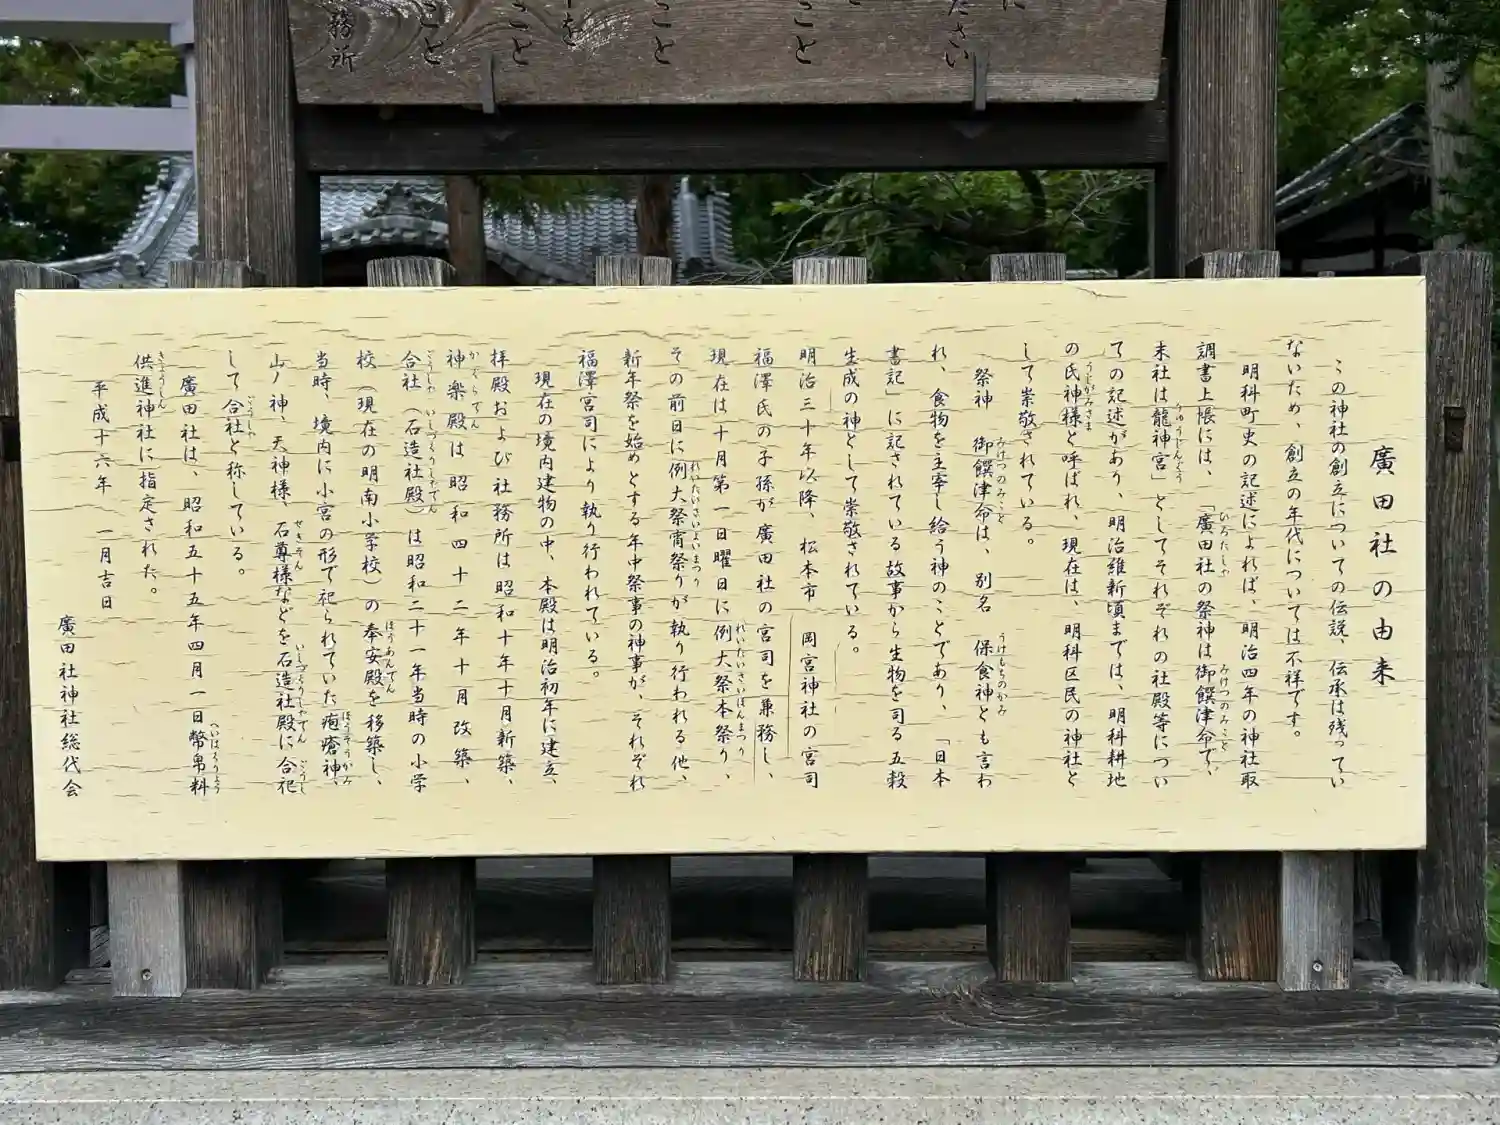 務所
こと
こと
を
こと
こと
ださい
に
廣田社の由来
この神社の創立についての伝説、伝承は残ってい
ないため、創立の年代については不祥です。
明科町史の記述によれば、明治四年の神社取
調書上帳には、「廣田社の祭神は御饌津命で、
末社は龍神宮」としてそれぞれの社殿等につい
ての記述があり 明治維新頃までは、明科耕地
の氏神様と呼ばれ、現在は、明科区民の神社と
して崇敬されている。
祭神 御饌津命は、別名 保食神とも言わ
れ、食物を主宰し給う神のことであり、「日本
書記」に記されている故事から生物を司る五穀
生成の神として崇敬されている。
明治三十年以降、松本市 岡宮神社の宮司
福澤氏の子孫が廣田社の宮司を兼務し、
現在は十月第一日曜日に例大祭本祭り、
その前日に例大祭宵祭りが執り行われる他、
新年祭を始めとする年中祭事の神事が、それぞれ
福澤宮司により執り行われている。
現在の境内建物の中、本殿は明治初年に建立、
拝殿および社務所は昭和十年十月新築、
神楽殿は昭和四十二年十月改築、
合社（石造社殿）は昭和二十一年当時の小学
校（現在の明南小学校）の奉安殿を移築し、
当時、境内に小宮の形で祀られていた疱瘡神、
山ノ神、天神様、石尊様などを石造社殿に合祀
して合社と称している。
廣田社は、昭和五十五年四月一日幣帛料
供進神社に指定された。
平成十六年 一月吉日
廣田社神社総代会